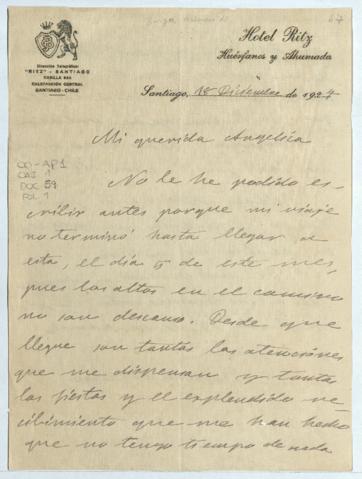 Hotel Ritz
Huérfanos y Ahumada
Dirección Telegráfica:
"RITZ" - SANTIAGO
CASILLA
CALEFACCIÓN CENTRAL
SANTIAGO-CHILE
Santiago, 18 Diciembre de 1924
Mi querida Angélica
OO-AP1
CAJ 1
DOC 59
FOL 1
No le he podido es-
cribir antes porque mi viaje
no terminó hasta llegar a
esta, el día 5 de este mes,
pues los altos en el camino
no son descanso. Desde que
llegue son tantas las atenciones
que me dispensan y tantas
las fiestas y el explendido re-
cibimiento que me han hecho
que no tengo tiempo de nada